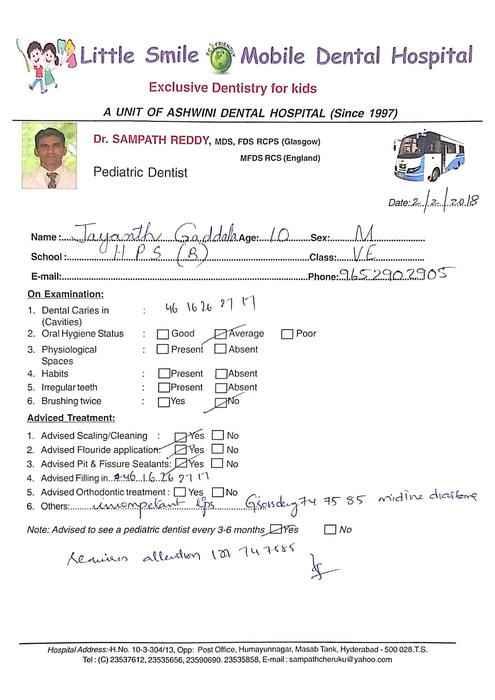 Little Smile Mobile Dental Hospital
ECO FRIENDLY
Exclusive Dentistry for kids
A UNIT OF ASHWINI DENTAL HOSPITAL (Since 1997)
Dr. SAMPATH REDDY, MDS, FDS RCPS (Glasgow)
MFDS RCS (England)
Pediatric Dentist
Date: 2/2/2018
Name: Jayanth Gaddah Age: 10 Sex: M
School: HPS (B) Class: VE
E-mail: Phone: 9652902905
On Examination:
1. Dental Caries in : 46 16 26 27 17
(Cavities)
2. Oral Hygiene Status : Good Average Poor
3. Physiological : Present Absent
Spaces
4. Habits : Present Absent
5. Irregular teeth : Present Absent
6. Brushing twice : Yes No
Adviced Treatment:
1. Advised Scaling/Cleaning : Yes No
2. Advised Flouride application: Yes No
3. Advised Pit & Fissure Sealants: Yes No
4. Advised Filling in. 46 16 26 27 17
5. Advised Orthodontic treatment : Yes No
6. Others: incompetent lips 74 75 85 midline diastema
Note: Advised to see a pediatric dentist every 3-6 months Yes No
Requires attention 74 75 85
Hospital Address:-H.No. 10-3-304/13, Opp: Post Office, Humayunnagar, Masab Tank, Hyderabad - 500 028.T.S.
Tel : (C) 23537612, 23535656, 23590690. 23535858, E-mail : sampathcheruku@yahoo.com